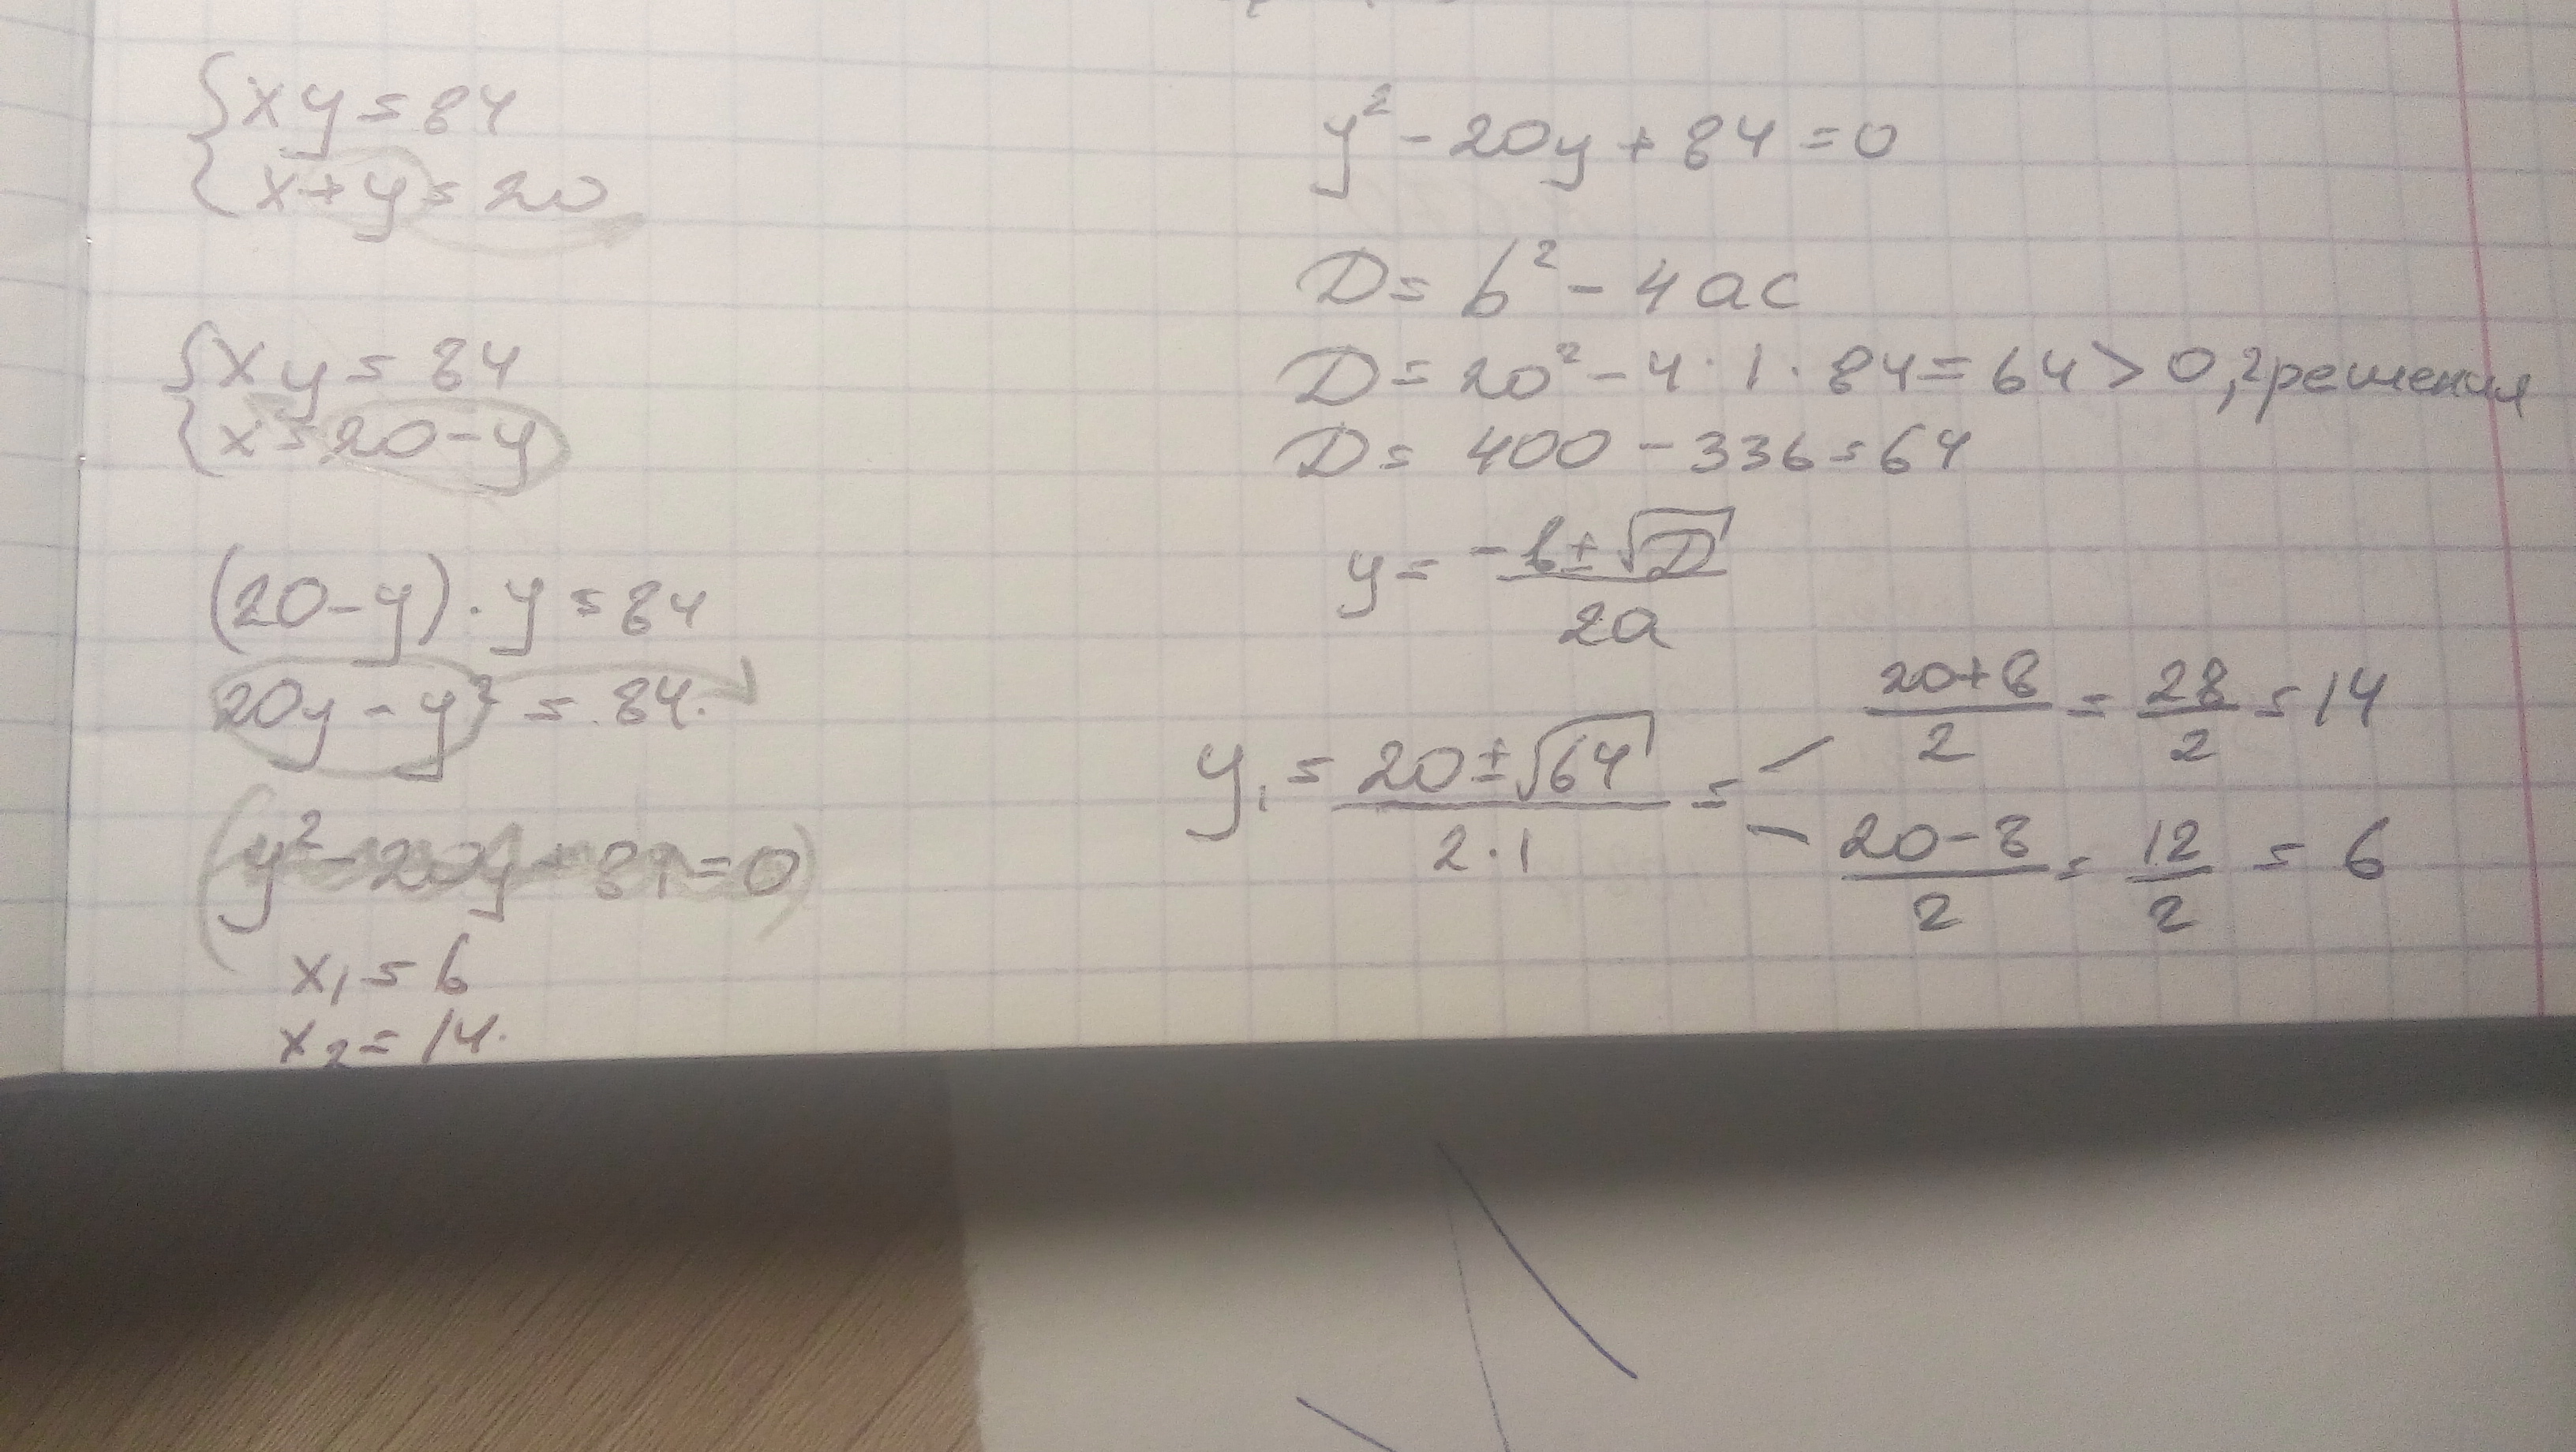 { xy = 84
{ x + y = 20
{ xy = 84
{ x = 20 - y
(20 - y) · y = 84
20y - y² = 84.
(y² - 20y + 84 = 0)
x₁ = 6
x₂ = 14.
y² - 20y + 84 = 0
D = b² - 4ac
D = 20² - 4 · 1 · 84 = 64 > 0, 2 решения
D = 400 - 336 = 64
y = (-b ± √D) / 2a
y₁ = (20 ± √64) / (2 · 1) =
(20 + 8) / 2 = 28 / 2 = 14
(20 - 8) / 2 = 12 / 2 = 6